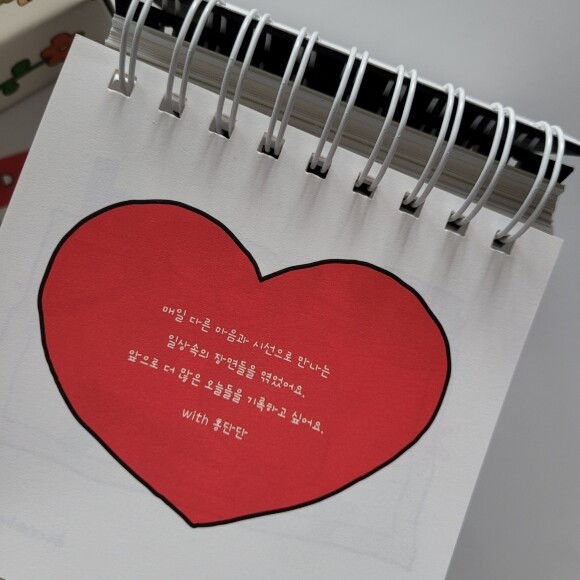 매일 다른 마음과 시선으로 만나는
일상속의 장면들을 엮었어요.
앞으로 더 많은 오늘들을 기록하고 싶어요.
with 몽단단